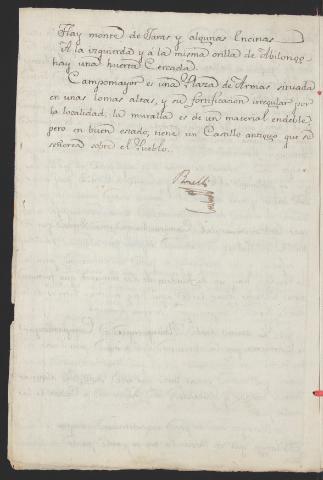 Hay monte de Jaras y algunas Encinas
A la izquierda y á la misma orilla de Abilongo
hay una huerta Cercada.
Campomayor es una Plaza de Armas situada
en unas lomas altas, y su fortificacion irregular por
la localidad: la muralla es de un material endeble
pero en buen estado; tiene un Castillo antiguo que se
señorea sobre el Pueblo.